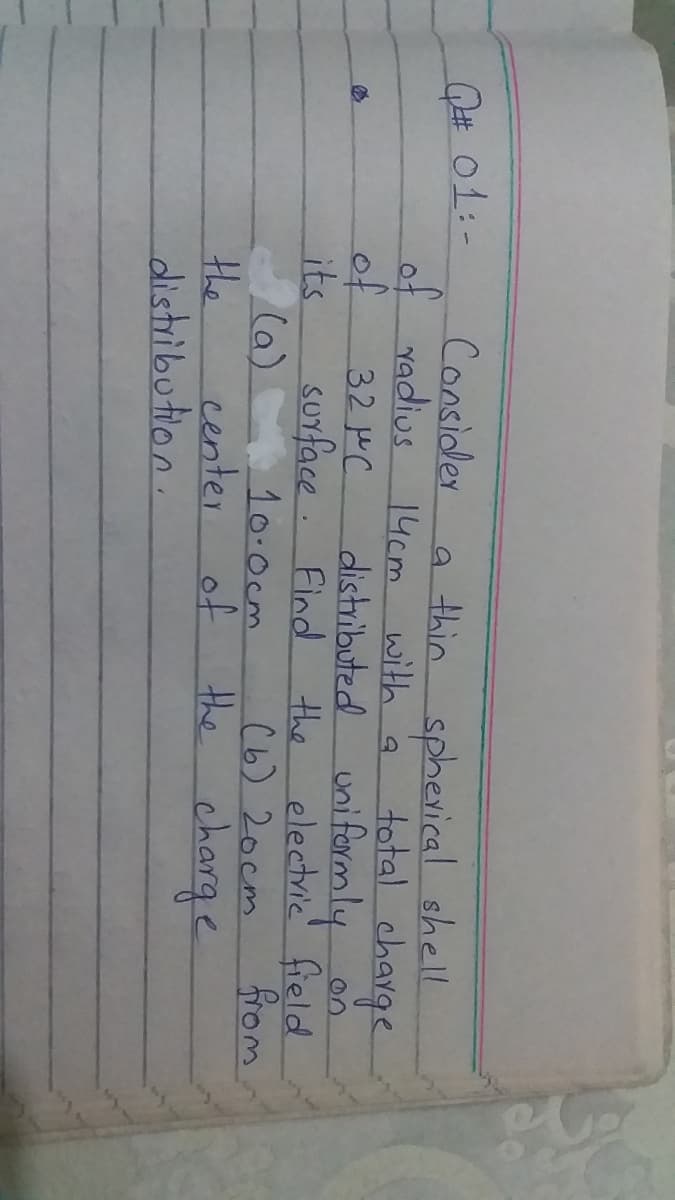 Q# 01:- Consider a thin spherical shell
of radius 14cm with a total charge
of 32 μC distributed uniformly on
its surface. Find the electric field
(a) 10.0cm (b) 20cm from
the center of the charge
distribution.